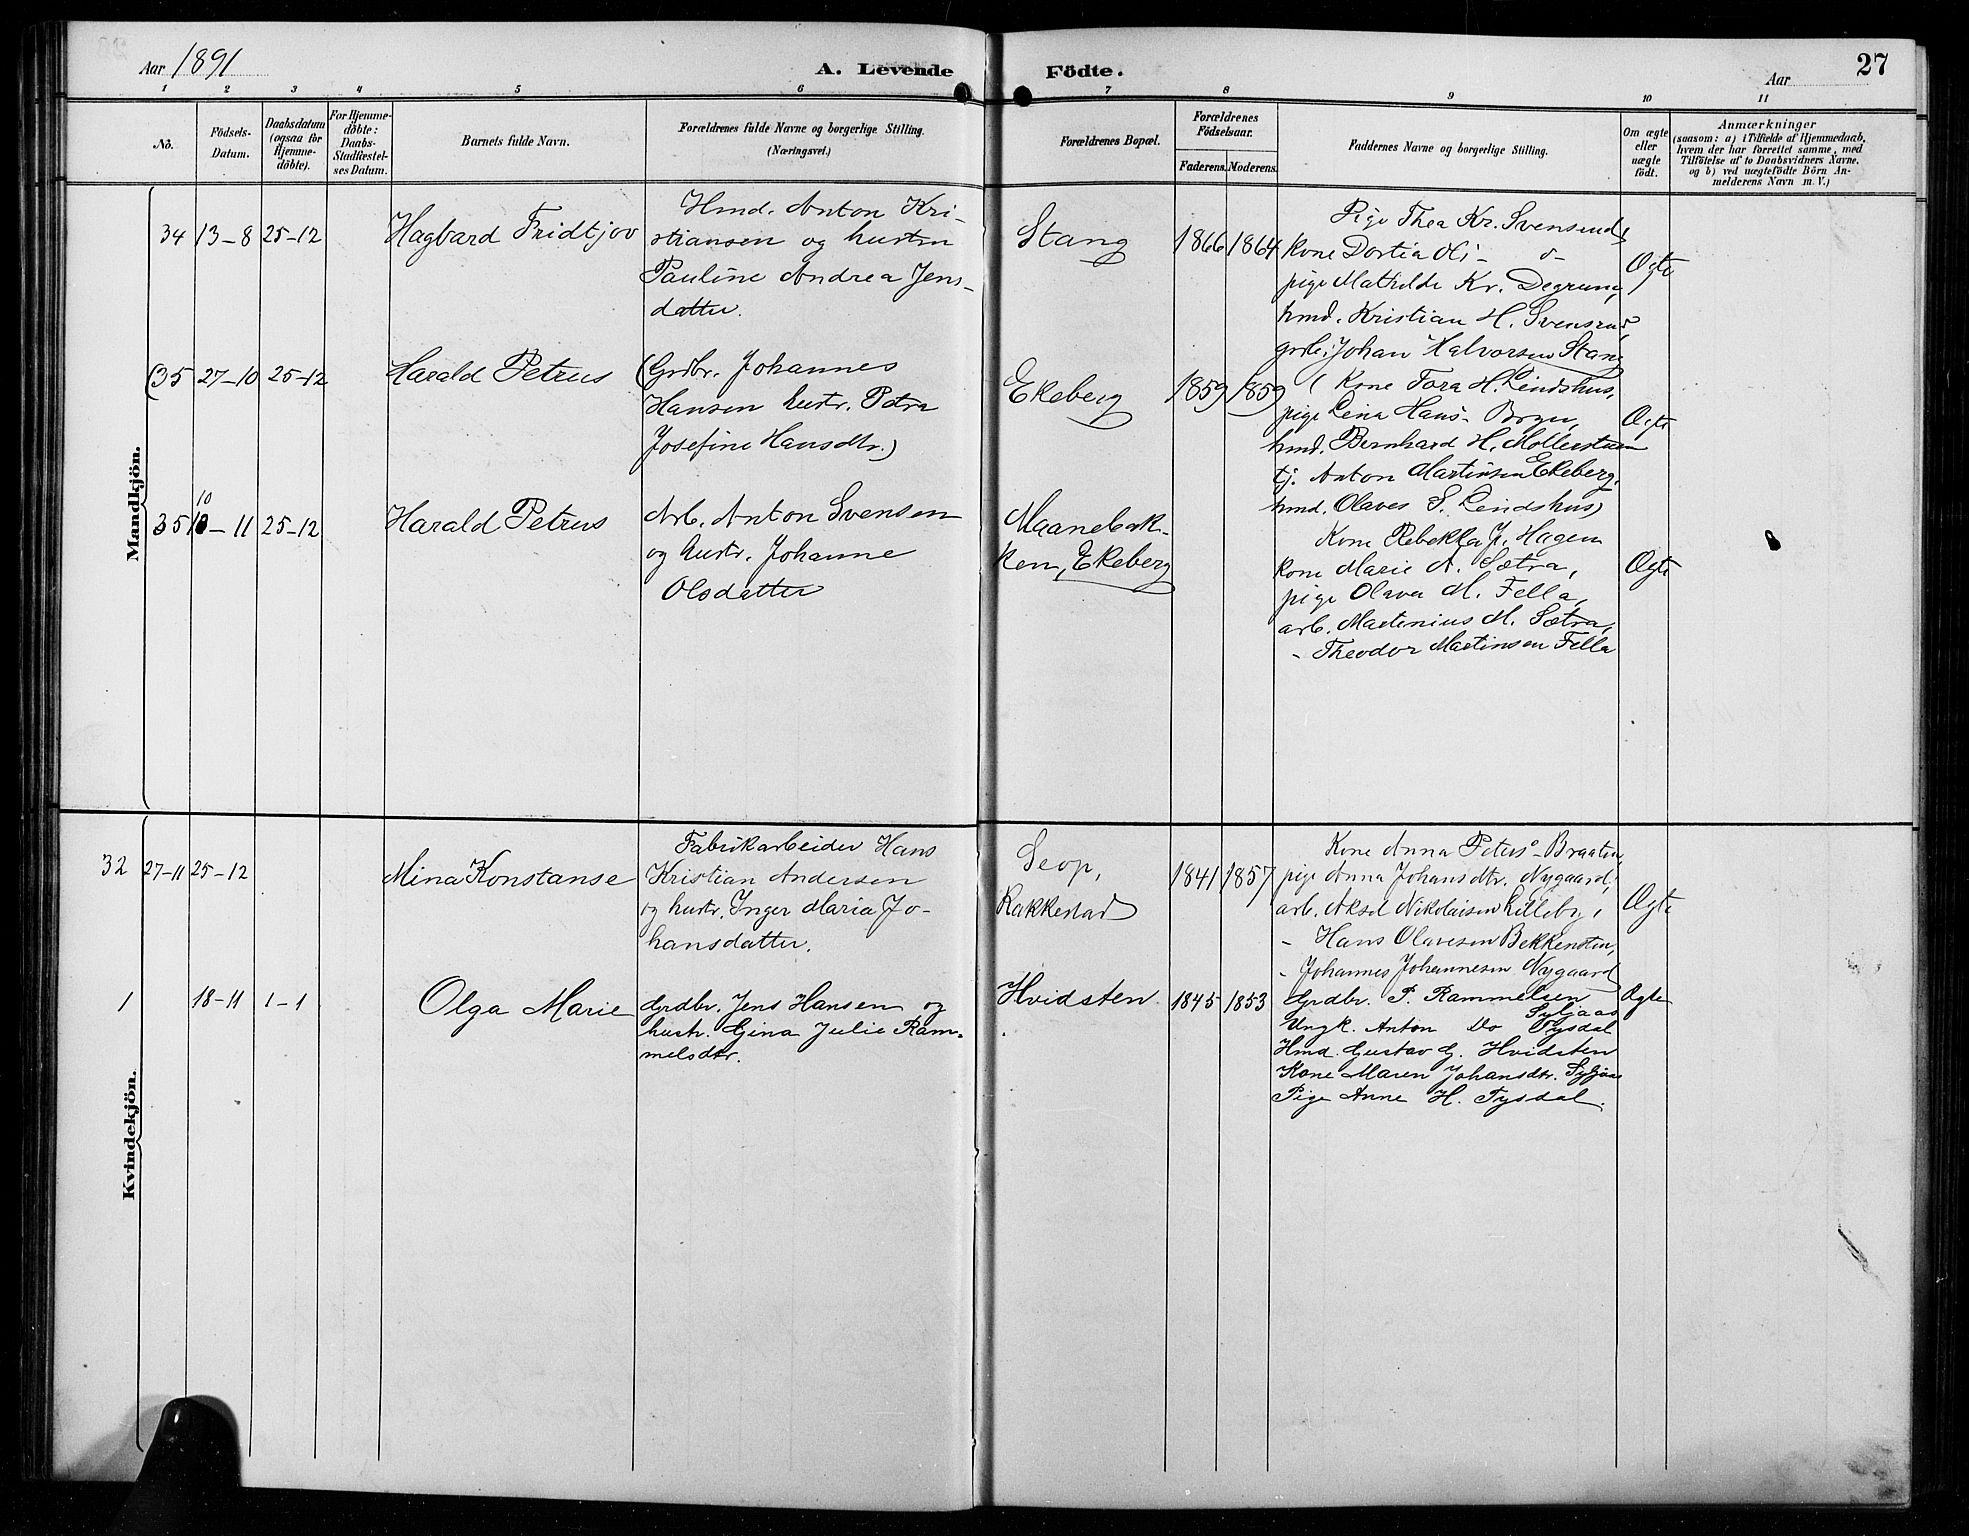 Aar 1891
A. Levende Födte.
Aar
27
1 2 3 4 5 6 7 8 9 10 11
No.
Födsels-
Datum.
Daabsdatum
(ogsaa for
Hjemme-
döbte).
For Hjemme-
döbte:
Daabs-
Stadfæstel-
ses Datum.
Barnets fulde Navn.
Forældrenes fulde Navne og borgerlige Stilling.
(Næringsvei.)
Forældrenes Bopæl.
Forældrenes
Födselsaar.
Faderens. Moderens.
Faddernes Navne og borgerlige Stilling.
Om ægte
eller
uægte
födt.
Anmærkninger
(saasom: a) i Tilfælde af Hjemmedaab,
hvem der har forrettet samme, med
Tilföielse af to Daabsvidners Navne,
og b) ved uægtefödte Börn An-
melderens Navn m. V.)
Mandkjön.
34 13-8 25-12
Hagbard Fridtjov
Hmd. Anton Kri-
stiansen og hustru
Pauline Andrea Jens-
datter.
Stang
1866 1864
Pige Thea Kr. Svensrud
kone Dortia Oli - o -
pige Mathilde Kr. Degrum,
hmd. Kristian H. Svensrud
grdb. Johan Halvorsen Stang
Ægte
(35 27-10 25-12
Harald Petrus
(Grdbr. Johannes
Hansen hustr. Petra
Josefine Hansdtr.)
Ekeberg
1859 1859
(Kone Tora H. Lindshus,
pige Lina Hans- Bryn,
hmd. Bernhard H. Mollerstuen
tj. Anton Martinsen Ekeberg,
hmd. Olaves S. Lindshus)
Ægte
35 10-11 25-12
10
Harald Petrus
Arb. Anton Svensen
og hustr. Johanne
Olsdatter
Maanebak-
ken, Ekeberg
Kone Rebekka J. Hagen
kone Marie A. Sætra,
pige Olava M. Fella,
arb. Martinius M. Sætra,
- Theodor Martinsen Fella
Ægte
Kvindekjön.
32 27-11 25-12
Mina Konstanse
Fabrikarbeider Hans
Kristian Andersen
og hustr. Inger Maria Jo-
hansdatter.
Seop,
Rakkestad
1841 1857
Kone Anna Peters- Braaten,
pige Anna Johansdtr. Nygaard,
arb. Aksel Nikolaisen Lilleby,
- Hans Olavesen Bekkensten,
- Johannes Johannesen Nygaard
Ægte
1 18-11 1-1
Olga Marie
Grdbr. Jens Hansen og
hustr. Gina Julie Ram-
melsdtr.
Hvidsten
1845 1853
Grdbr. P. Rammelsen
Syljaas
Ungk. Anton Do Tysdal
Hmd. Gustav G. Hvidsten
Kone Maren Johansdtr. Syljaas
Pige Anne H. Tysdal.
Ægte